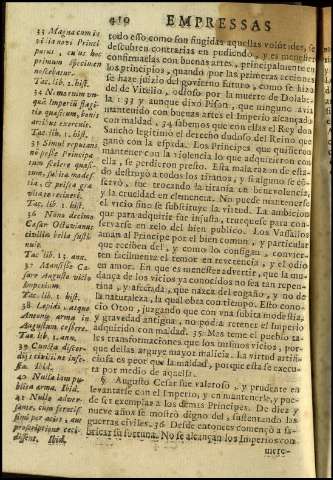 419 EMPRESSAS
33 Magna cum in
vidia novi Princi
patus, cuius hoc
primum specimen
noscebatur.
Tac. lib. 2. hist.
34 Nemo enim un-
quam Imperium flagi-
tio quæsitum, bonis
artibus exercuit.
Tac. lib. 1. hist.
35 Simul reputans
nõ posse Principa-
tum scelere quæsi-
tum, subita modes-
tia, & prisca gra
vitate retineri.
Tac. lib. 1. hist.
36 Nono decimo
Cæsar Octavianus
civilia bella susti
nuit.
Tac. lib. 13. ann.
37 Mansisse Cæ-
sare Augusto victo
Imperium.
Tac. lib. 1. hist.
38 Lepidi, atque
Antonij arma in
Augustum cessere.
Tac. lib. 1. ann.
39 Cuncta discor-
dijs civilibus fessa.
Ibid.
40 Nulla iam pu-
blica arma. Ibid.
41 Nullo adver-
sante, cum ferocis-
simi per acies, aut
proscriptione ceci-
dissent. Ibid.
todo esso como son fingidas aquellas volũtades, se
descubren contrarias en perdiendo, y es menester
confirmarlas con buenas artes, principalmente en
los principios, quando por las primeras acciones
se haze juizio del govierno futuro, como se hizo
del de Vitelio, odioso por la muerte de Dolabe-
la: 33 y aunque dixo Pison, que ninguno avia
mantenido con buenas artes el Imperio alcançado
con maldad, 34 sabemos que con ellas el Rey don
Sancho legitimó el derecho dudoso del Reino que
ganó con la espada. Los Principes que quisieron
mantener con la violencia lo que adquirieron con
ella, se perdieron presto. Esta mala razon de esta-
do destruyó a todos los tiranos, y si alguno se cõ-
servó, fue trocando la tirania en benevolencia,
y la crueldad en clemencia. No puede mantenerse
el vicio sino se substituye la virtud. La ambicion
que para adquirir fue injusta, truequese para con-
servarse en zelo del bien publico. Los Vassallos
aman al Principe por el bien comun, y particular
que reciben del, y como los consigan, convier-
ten facilmente el temor en reverencia, y el odio
en amor. En que es menester advertir, que la mu-
dança de los vicios ya conocidos no sea tan repen-
tina, y afectada, que nazca del engaño, y no de
la naturaleza, la qual obra con tiempo. Esto cono-
cio Oton, juzgando que con una subita modestia,
y gravedad antigua, no podia retener el Imperio
adquirido con maldad. 35 Mas teme el pueblo ta-
les transformaciones que los mismos vicios, por-
que dellas arguye mayor malicia. La virtud artifi-
ciosa es peor que la maldad, porque esta se executa
por medio de aquella.
§ Augusto Cesar fue valeroso, y prudente en
levantarse con el Imperio, y en mantenerle, y pue-
de ser exemplar a los demas Principes. De diez y
nueve años se mostró digno del, sustentando las
guerras civiles. 36 Desde entonces començó a fa-
bricar su fortuna. No se alcançan los Imperios con
mere-